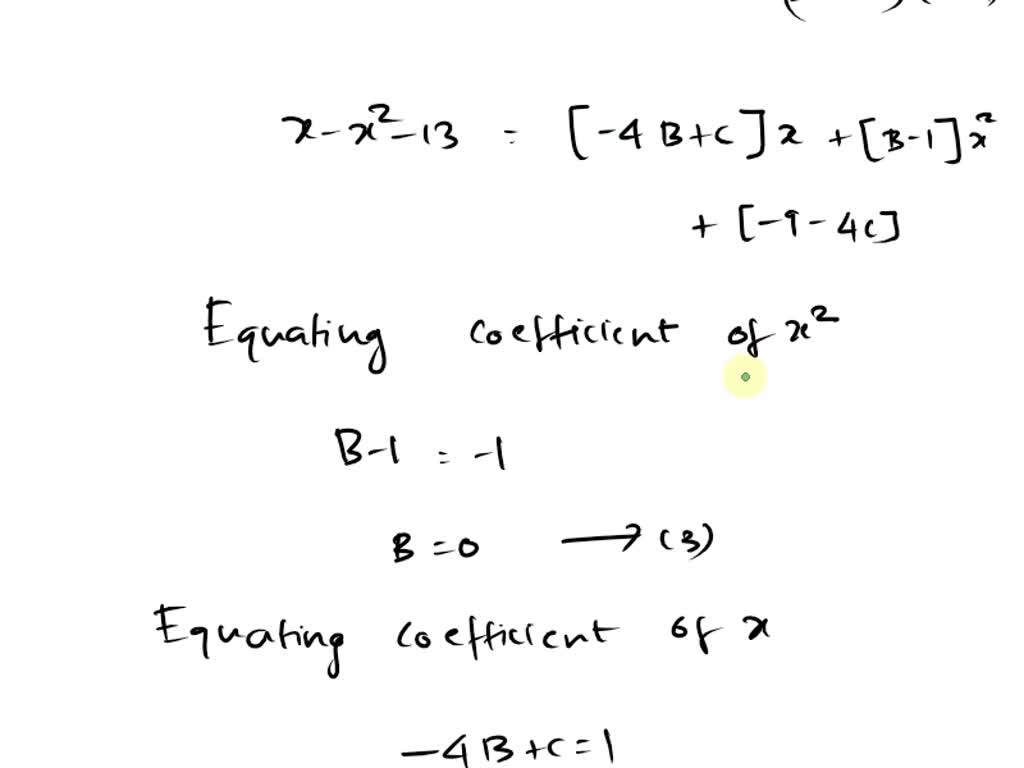 x-x²-13 = [-4B+C]x + [B-1]x²
+ [-9-4C]
Equating coefficient of x²
B-1 = -1
B=0 → (3)
Equating coefficient of x
-4B+C=1